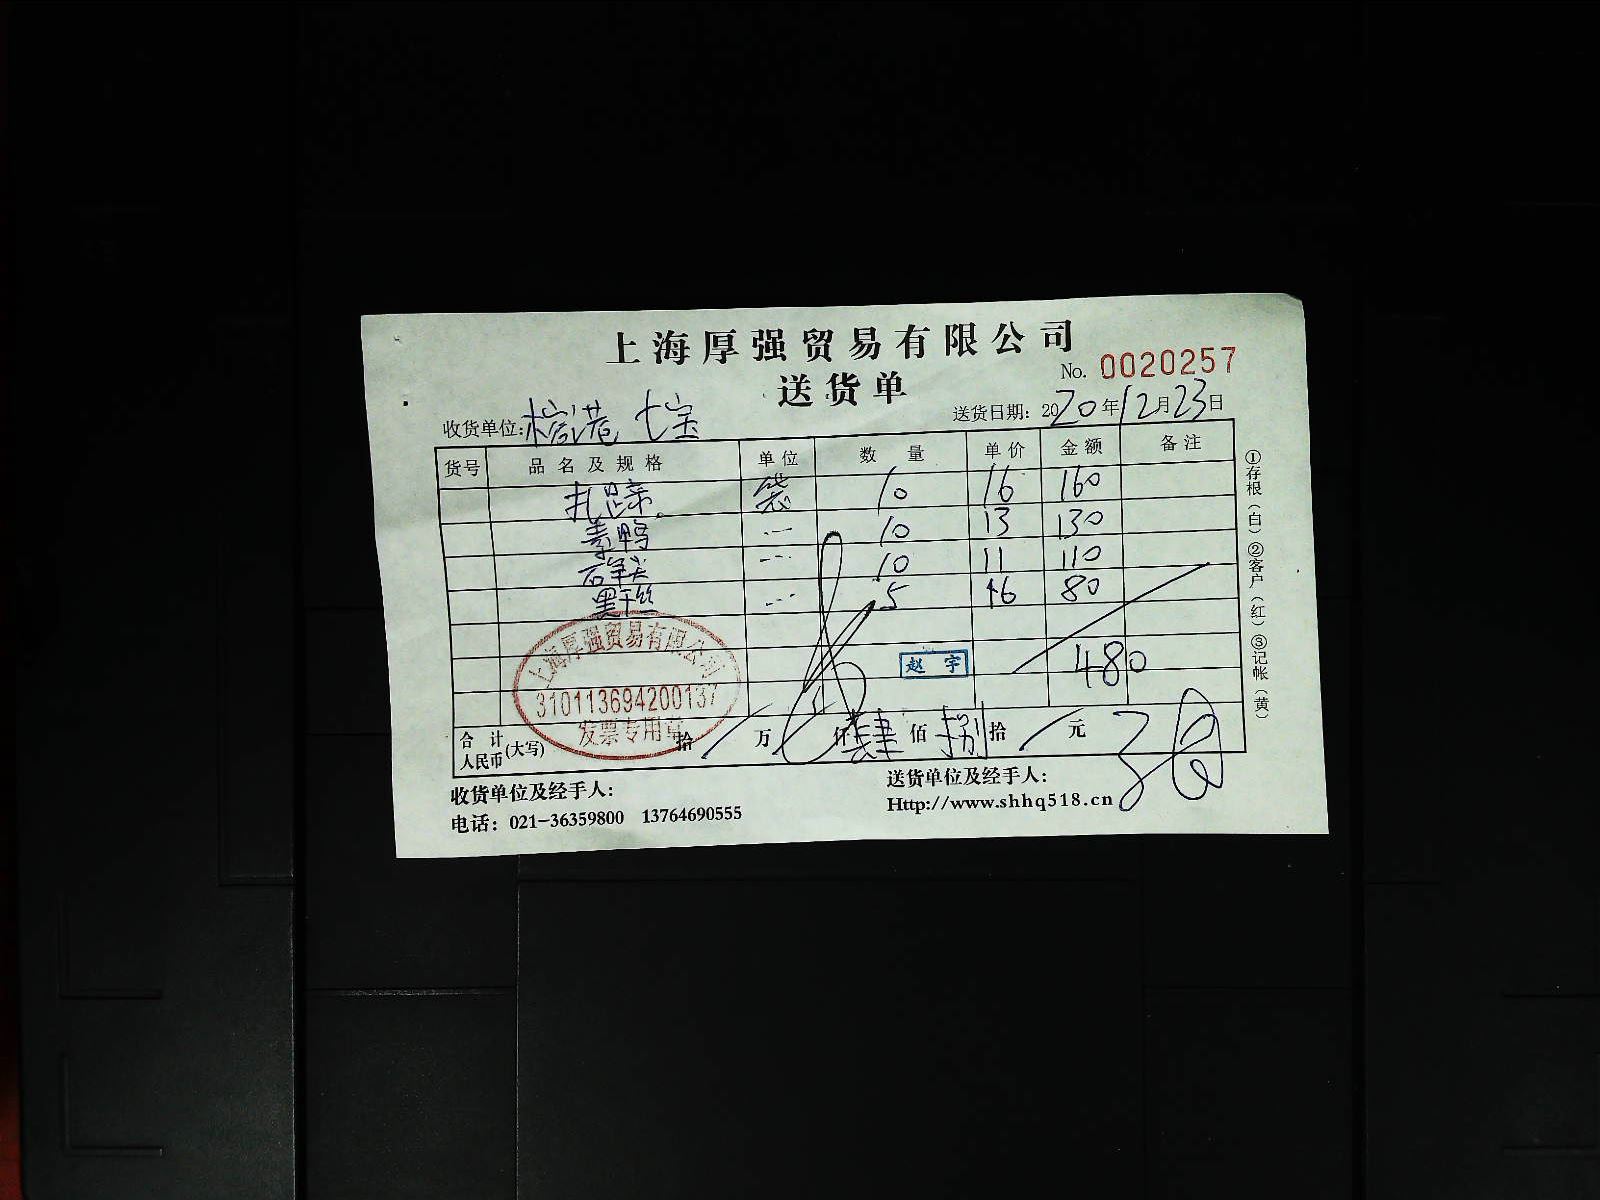 上海厚强贸易有限公司
送货单
No. 0020257
收货单位: 七宝
送货日期: 2020年12月23日
货号 品名及规格 单位 数量 单价 金额 备注
扎蹄 袋 10 16 160
素鸭 10 13 130
10 11 110
黑干丝 5 16 80
赵宇
480
上海厚强贸易有限公司
310113694200137
发票专用章
合计人民币(大写) 拾 万 仟 肆 佰 捌 拾 元
①存根(白)②客户(红)③记帐(黄)
收货单位及经手人:
送货单位及经手人:
电话: 021-36359800 13764690555
Http://www.shhq518.cn